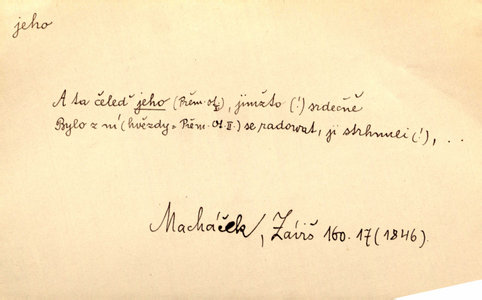 jeho
A ta čeleď jeho (Přěm. Ot.), jimžto (!) srdečně
Bylo z ní (hvězdy = Přěm. Ot. II.) se radowat, ji strhnuli (!), ...
Macháček, Záviš 160. 17 (1846).